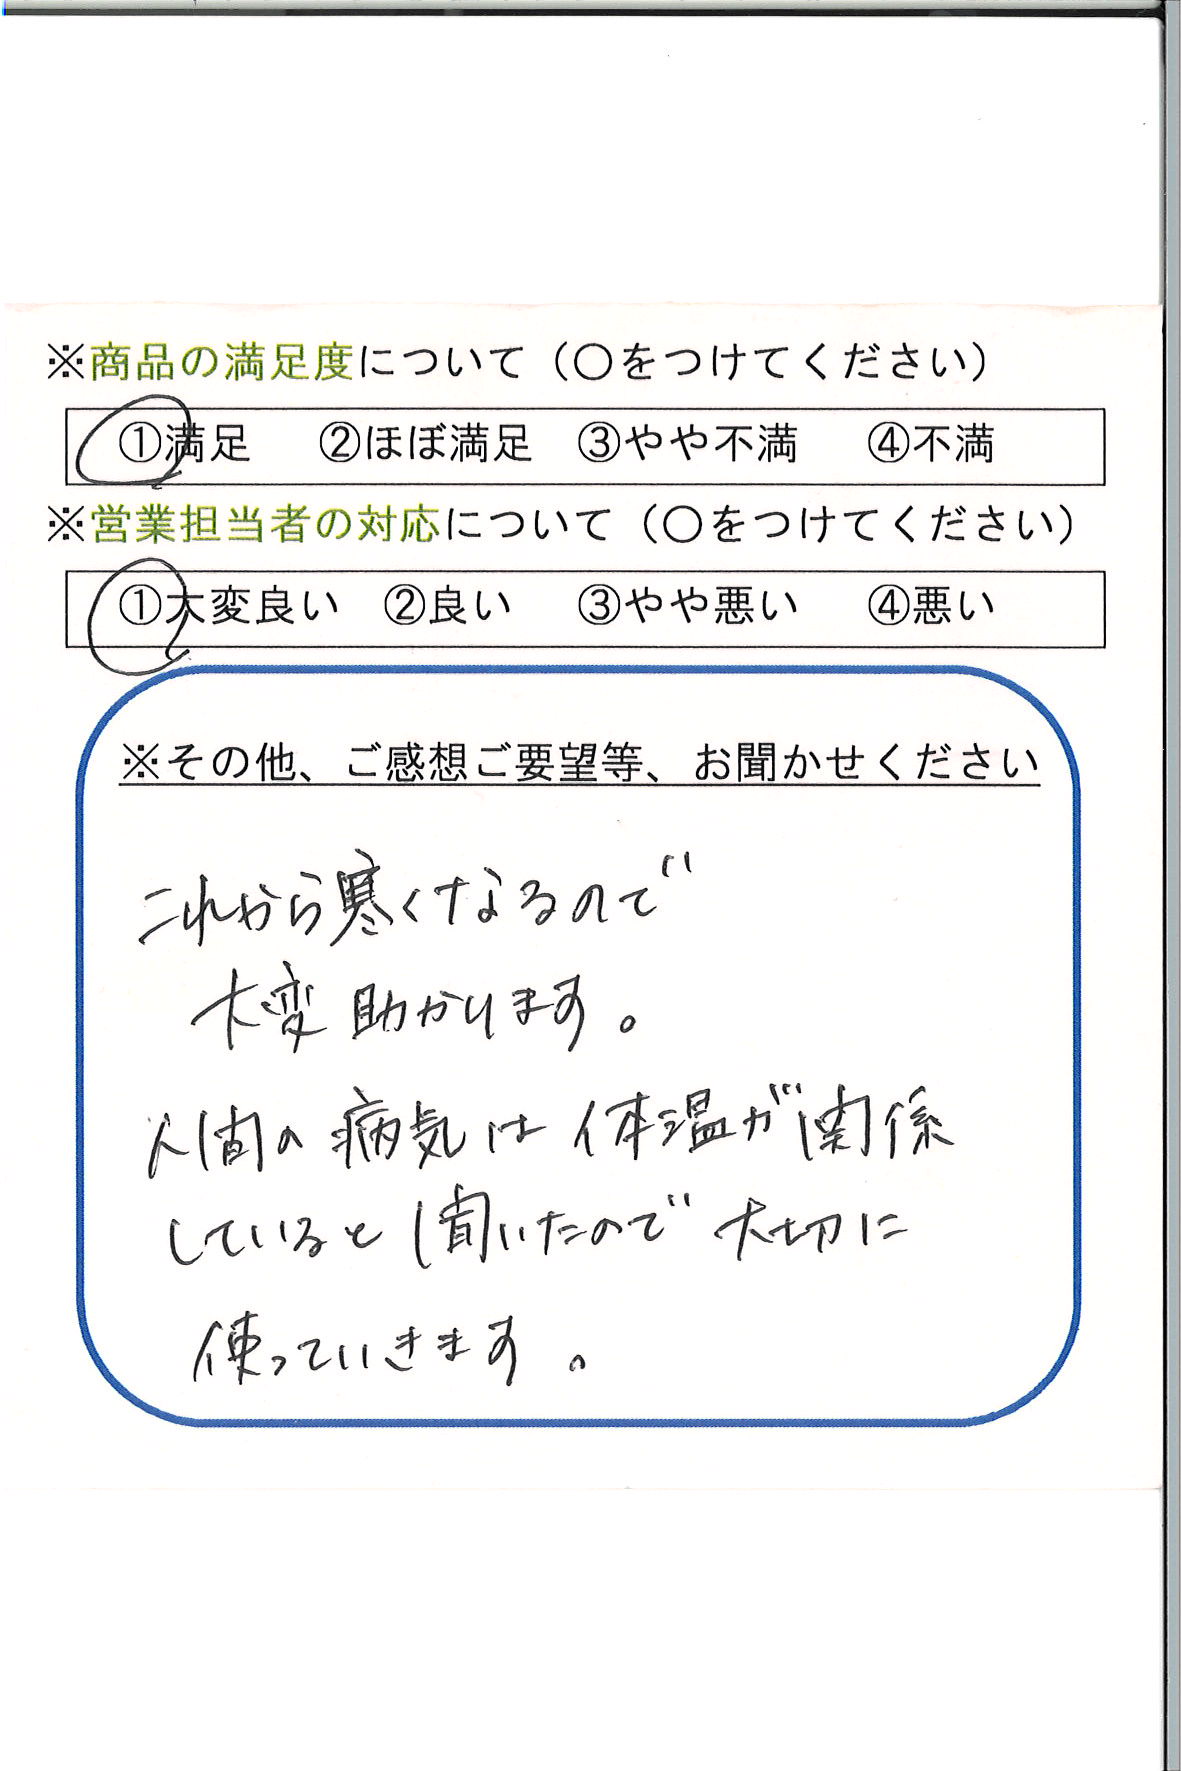 ※商品の満足度について（〇をつけてください）
①満足　②ほぼ満足　③やや不満　④不満
※営業担当者の対応について（〇をつけてください）
①大変良い　②良い　③やや悪い　④悪い
※その他、ご感想ご要望等、お聞かせください
これから寒くなるので
大変助かります。
人間の病気は体温が関係
していると聞いたので大切に
使っていきます。